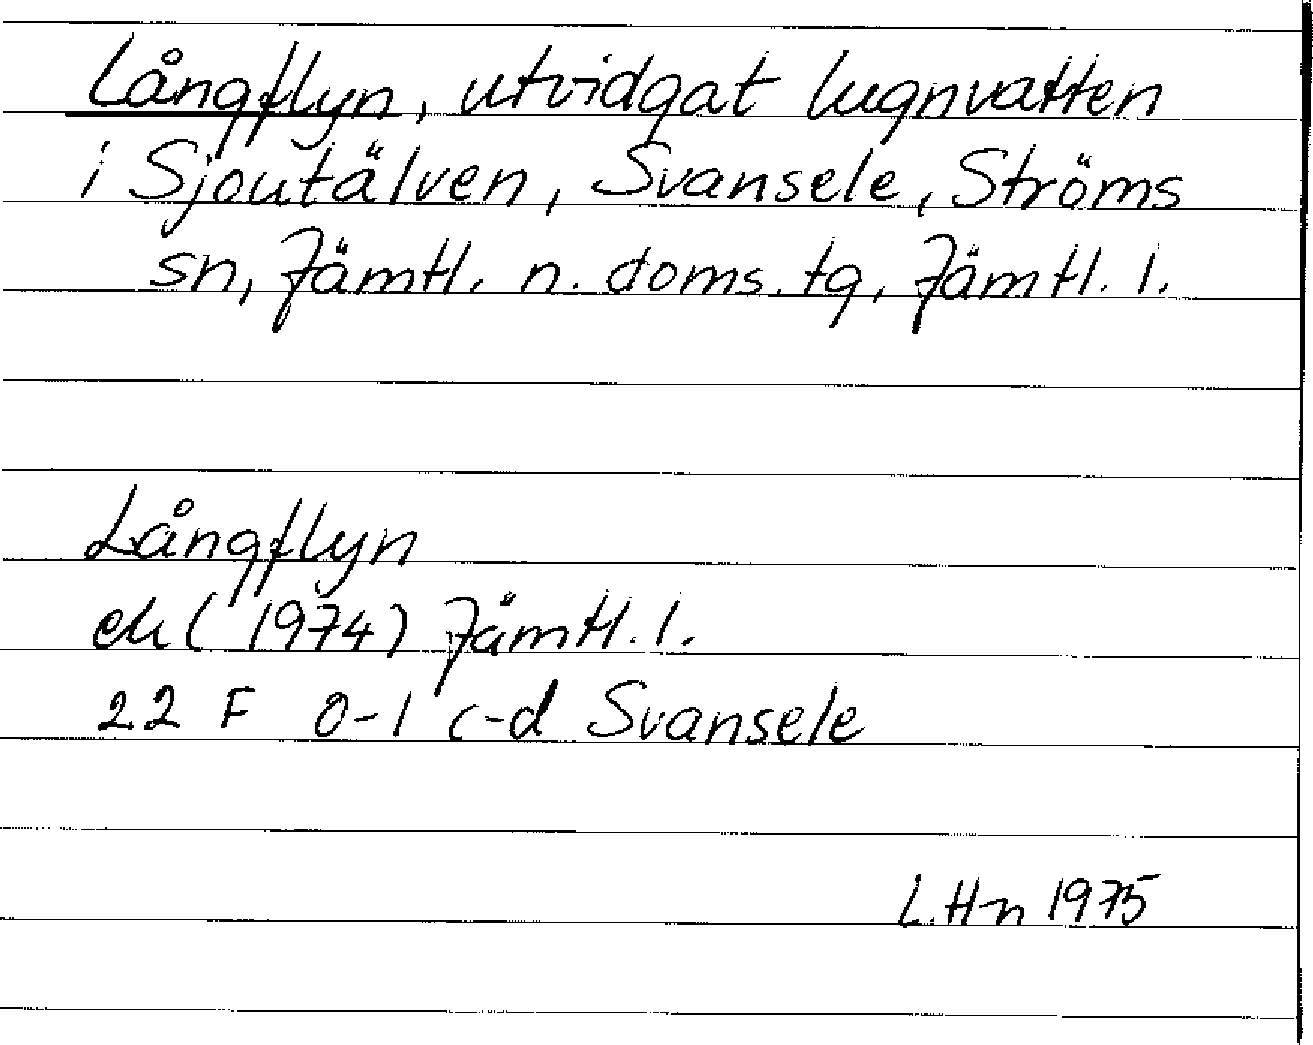 Långflyn, utvidgat lugnvatten
i Sjoutälven, Svansele, Ströms
sn, Jämtl. n. doms. tg, Jämtl. l.
Långflyn
ek (1974) Jämtl. l.
22 F 0-1 c-d Svansele
L.Hn 1975